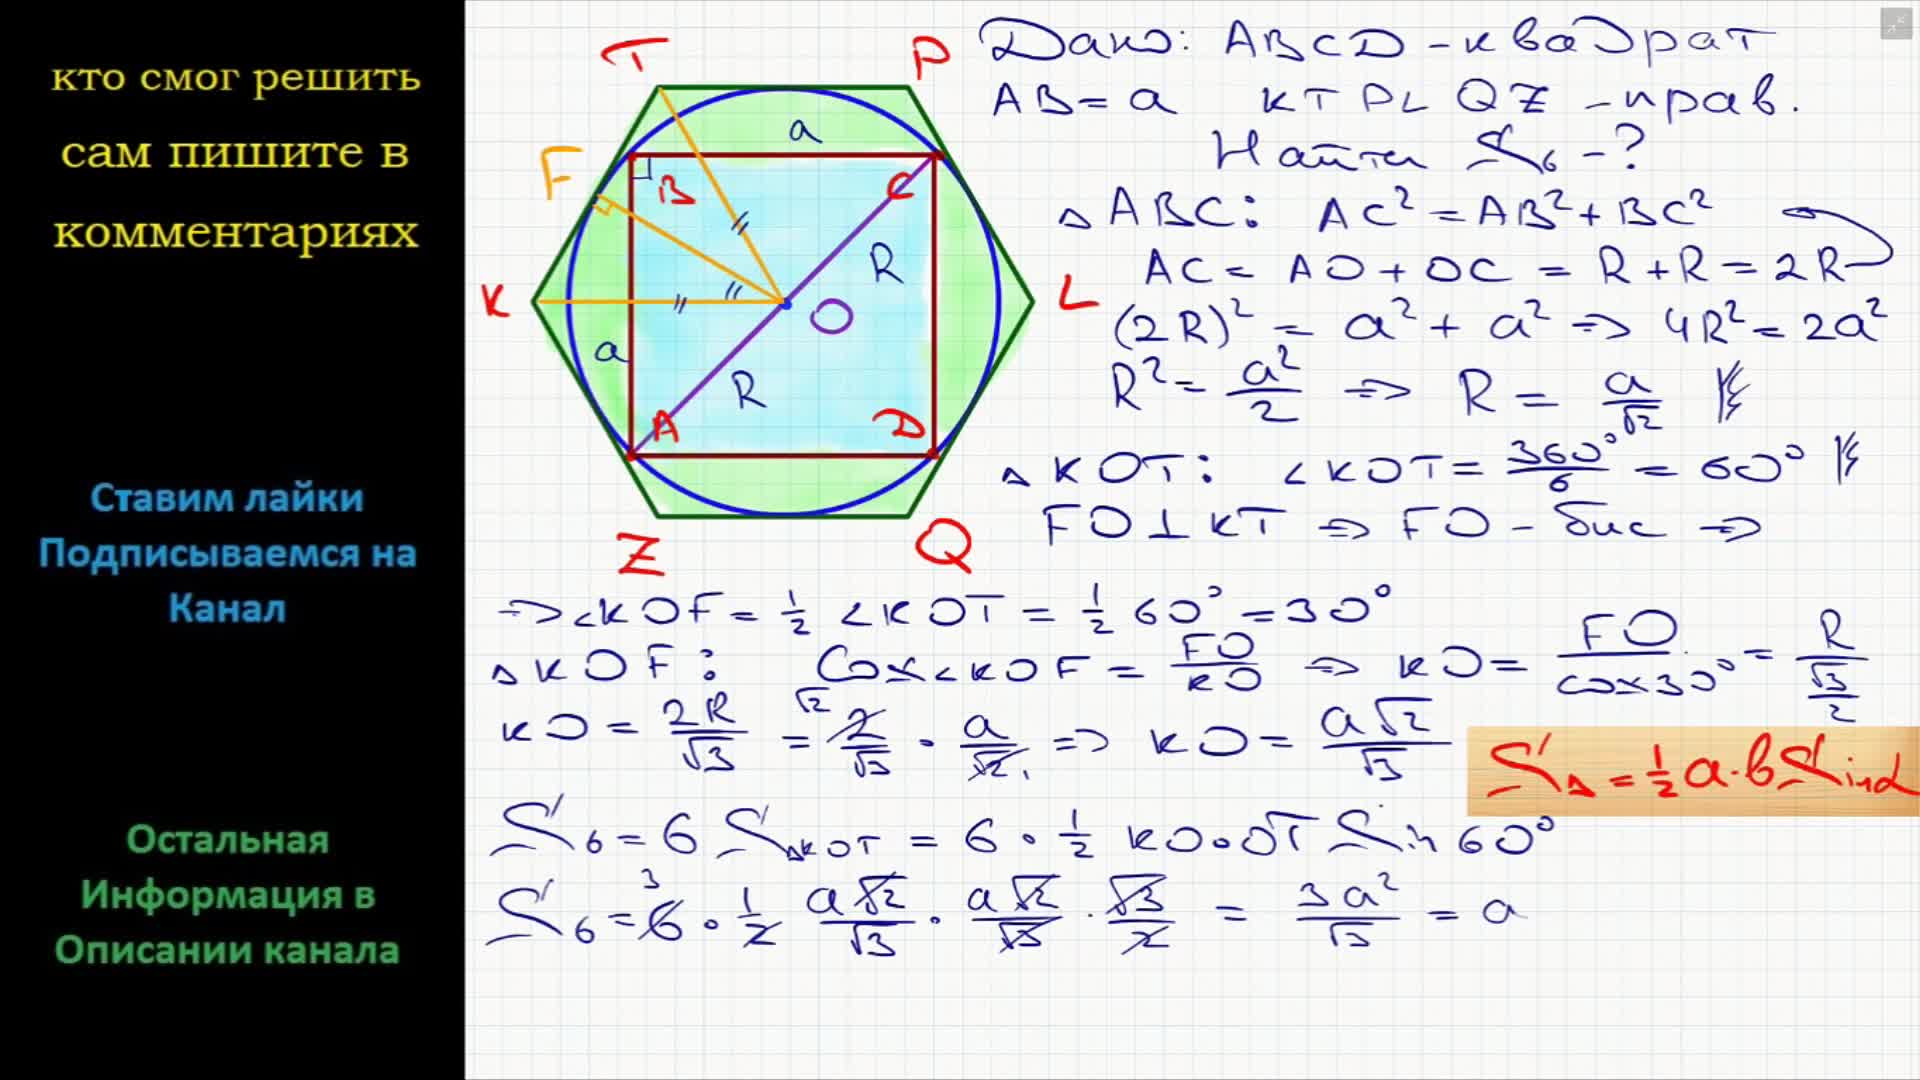 кто смог решить
сам пишите в
комментариях
Ставим лайки
Подписываемся на
Канал
Остальная
Информация в
Описании канала
T P
F a
B C
K R L
a O
R
A D
Z Q
Дано: ABCD - квадрат
AB = a KTPLQZ - прав.
Найти S₆ - ?
△ABC: AC² = AB² + BC²
AC = AO + OC = R + R = 2R
(2R)² = a² + a² => 4R² = 2a²
R² = a²/2 => R = a/√2
△KOT: ∠KOT = 360°/6 = 60°
FO ⊥ KT => FO - бис =>
=> ∠KOF = 1/2 ∠KOT = 1/2 60° = 30°
△KOF: Cos∠KOF = FO/KO => KO = FO/cos30° = R/(√3/2)
KO = 2R/√3 = √2 2/√3 · a/√2 1 => KO = a√2/√3
S△ = 1/2 a·b Sinα
S₆ = 6 S△KOT = 6 · 1/2 KO·OT Sin 60°
S₆ = 3 6 · 1/2 a√2/√3 · a√2/√3 · √3/2 = 3a²/√3 = a